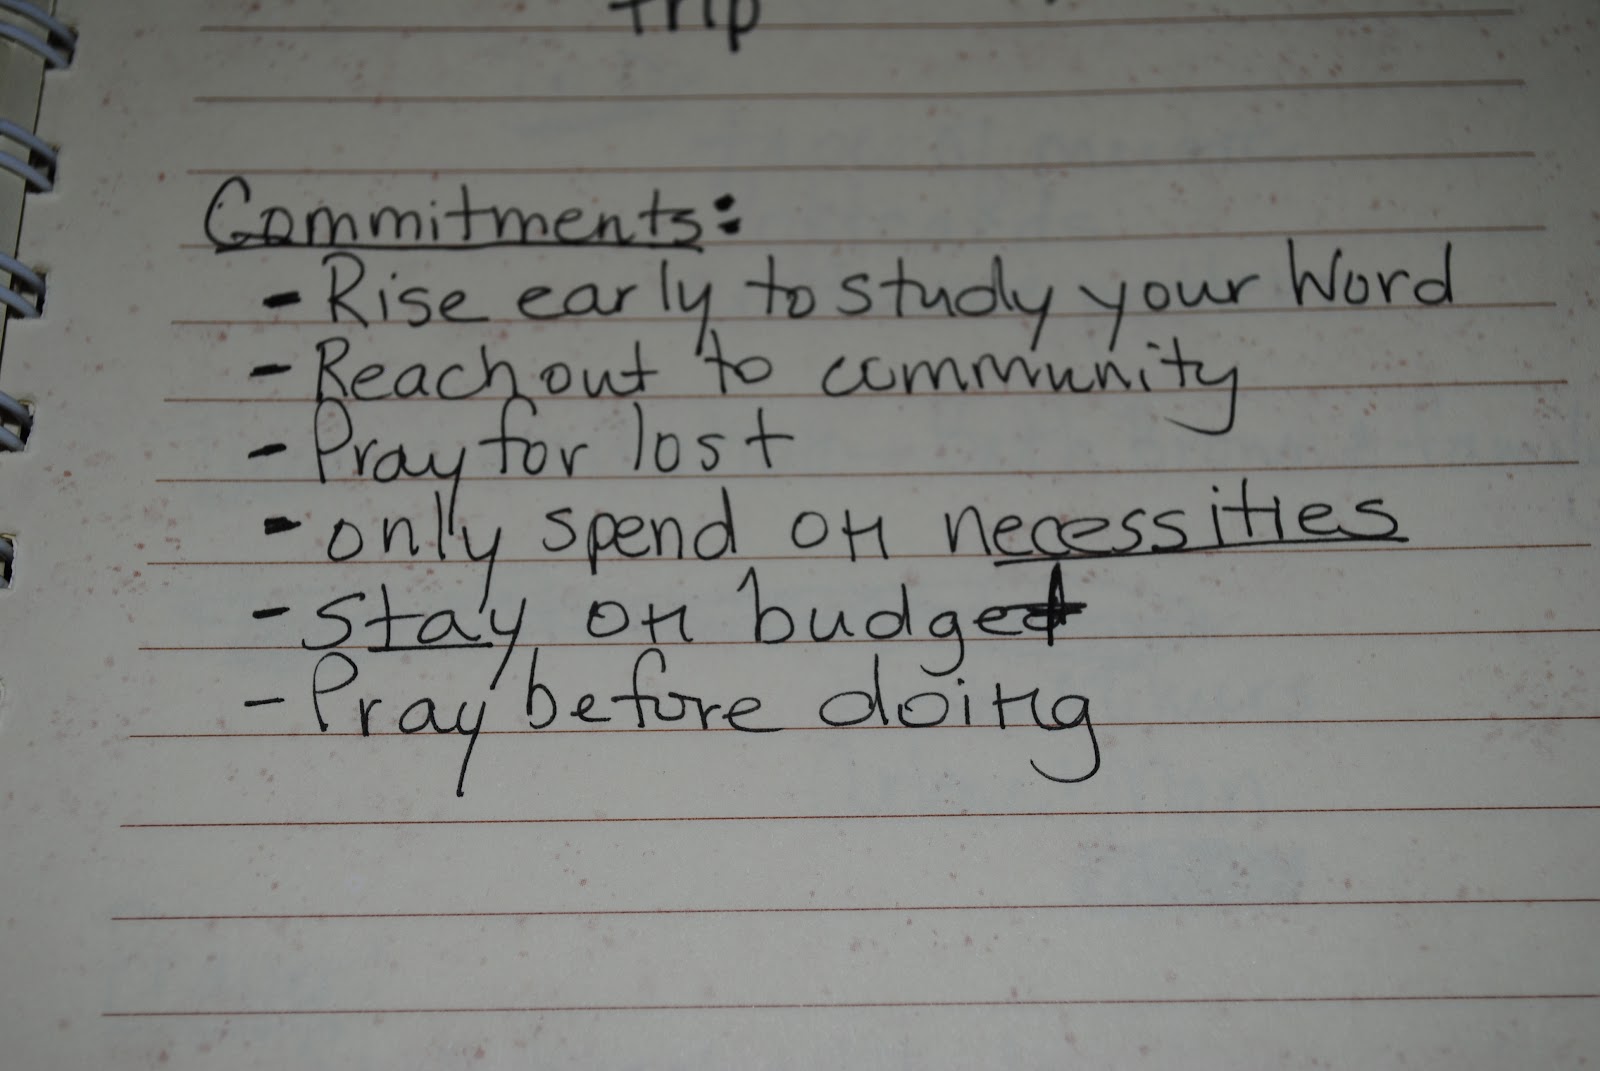 trip
Commitments:
- Rise early to study your Word
- Reach out to community
- Pray for lost
- only spend on necessities
- stay on budget
- Pray before doing